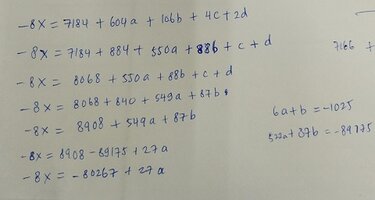 -8x = 7184 + 604a + 106b + 4c + 2d
-8x = 7184 + 884 + 550a + 88b + c + d
7166 +
-8x = 8068 + 550a + 88b + c + d
-8x = 8068 + 840 + 549a + 87b
-8x = 8908 + 549a + 87b
6a + b = -1025
522a + 87b = -89175
-8x = 8908 - 89175 + 27a
-8x = -80267 + 27a